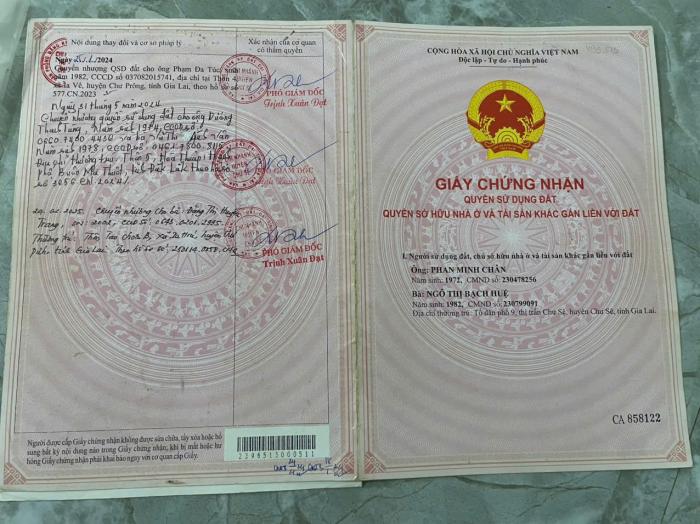 Nội dung thay đổi và cơ sở pháp lý
Xác nhận của cơ quan
có thẩm quyền
Ngày 2024
Chuyển nhượng QSD đất cho ông Phạm Đa Túc, sinh
năm 1982, CCCD số 037082015741, địa chỉ tại Thôn
xã Ia Vê, huyện Chư Prông, tỉnh Gia Lai, theo hồ sơ số
577.CN.2023
PHÓ GIÁM ĐỐC
Trịnh Xuân Đạt
Ngày 31 tháng 5 năm 2024
Chuyển nhượng quyền sử dụng đất cho ông Dương
Thanh Tùng, Năm sinh 1974, CCCD số:
và bà Văn
Năm sinh 1978, CCCD số
Địa chỉ thường trú: Thôn 5, Hoà Thuận, Thành
phố Buôn Ma Thuột, tỉnh Đắk Lắk theo hồ sơ
số
PHÓ GIÁM ĐỐC
Trịnh Xuân Đạt
2025. Chuyển nhượng cho bà Đặng Thị Huyền
Trang, CCCD số
Thường trú: Thôn Tao Chor B, xã huyện Chư
Pưh tỉnh Gia Lai Theo hồ sơ số
PHÓ GIÁM ĐỐC
Trịnh Xuân Đạt
Người được cấp Giấy chứng nhận không được sửa chữa, tẩy xóa hoặc bổ
sung bất kỳ nội dung nào trong Giấy chứng nhận; khi bị mất hoặc hư
hỏng Giấy chứng nhận phải khai báo ngay với cơ quan cấp Giấy.
2396515000511
CỘNG HÒA XÃ HỘI CHỦ NGHĨA VIỆT NAM
Độc lập - Tự do - Hạnh phúc
GIẤY CHỨNG NHẬN
QUYỀN SỬ DỤNG ĐẤT
QUYỀN SỞ HỮU NHÀ Ở VÀ TÀI SẢN KHÁC GẮN LIỀN VỚI ĐẤT
I. Người sử dụng đất, chủ sở hữu nhà ở và tài sản khác gắn liền với đất
Ông: PHAN MINH CHÂN
Năm sinh: 1972, CMND số: 230478256
Bà: NGÔ THỊ BẠCH HUỆ
Năm sinh: 1982, CMND số: 230799091
Địa chỉ thường trú: Tổ dân phố 9, thị trấn Chư Sê, huyện Chư Sê, tỉnh Gia Lai.
CA 858122